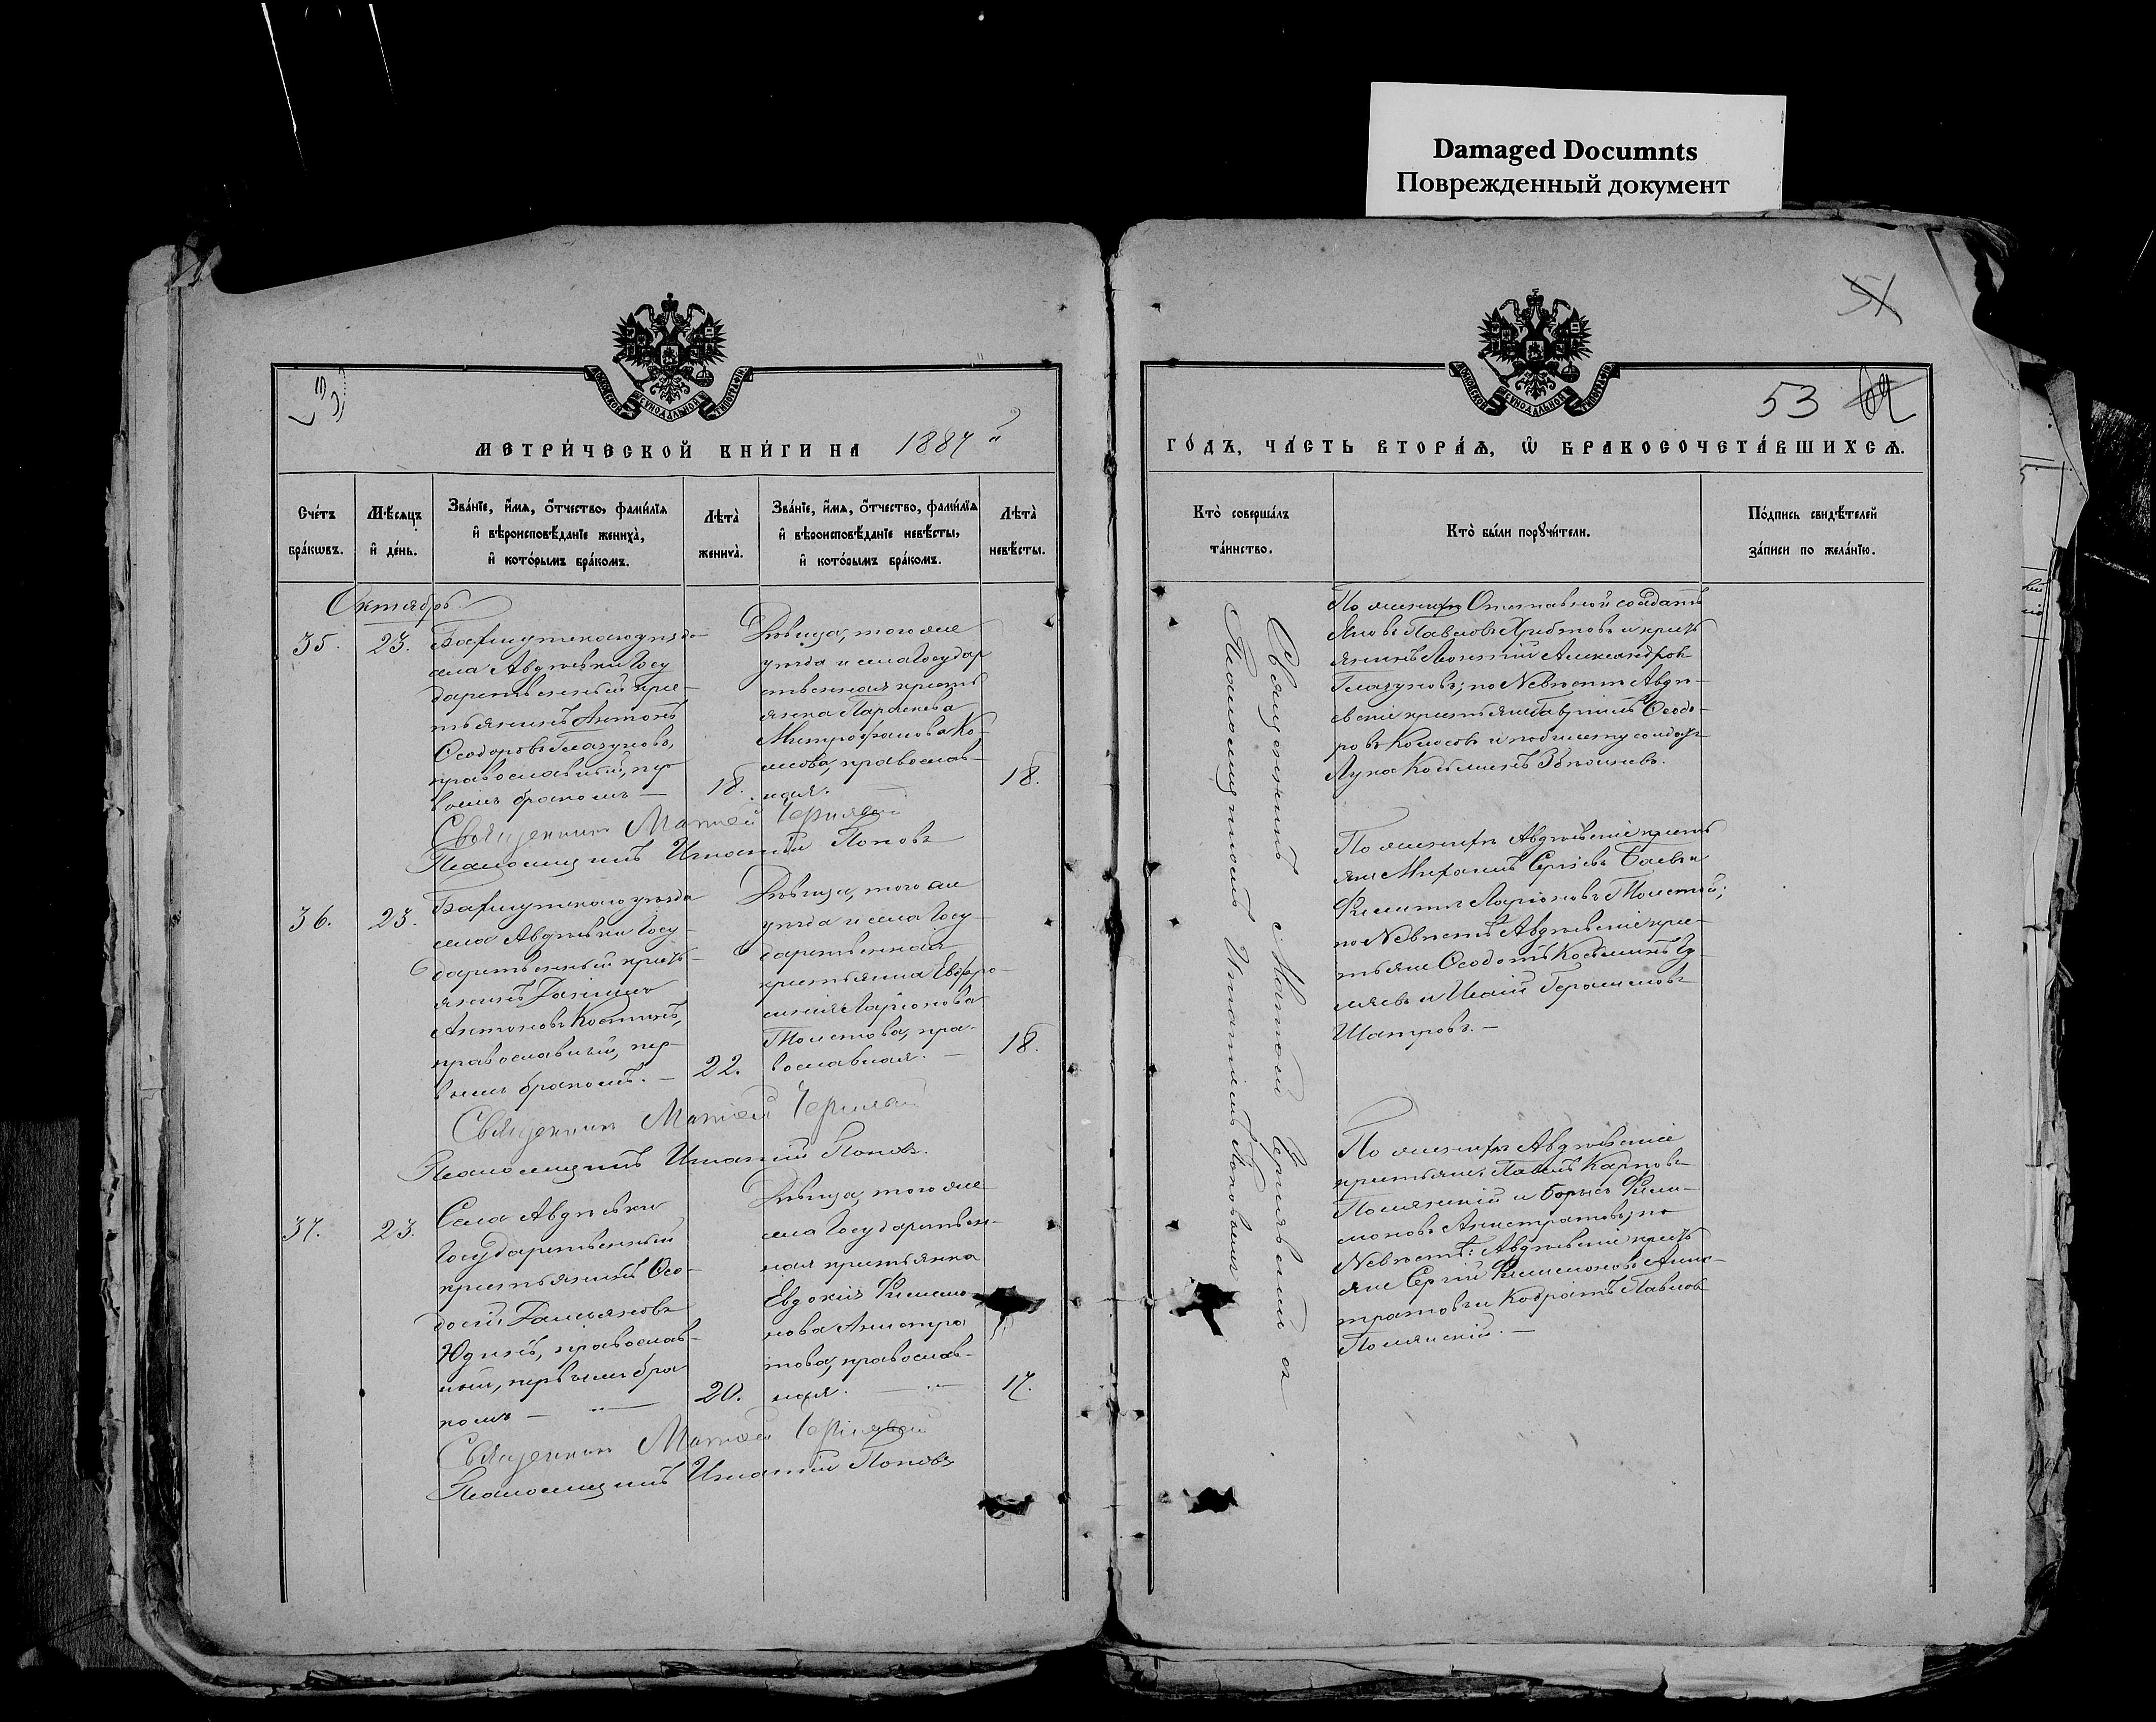 Damaged Documnts
Поврежденный документ
МОСКОВСКОЙ СѴНОДАЛЬНОЙ ТИПОГРАФІИ
МЕТРИ́ЧЕСКОЙ КНИ́ГИ НА 1887
Сче́тъ бра́кωвъ.
Мѣ́сяцъ и҆ де́нь.
Зва́нїе, и҆́мя, ѻ҆́тчество, фами́лїя
и҆ вѣроисповѣ́данїе жениха̀,
и҆ кото́рымъ бра́комъ.
Лѣта̀ жениха̀.
Зва́нїе, и҆́мя, ѻ҆́тчество, фами́лїя
и҆ вѣроисповѣ́данїе невѣ́сты,
и҆ кото́рымъ бра́комъ.
Лѣта̀ невѣ́сты.
Октябрь
35. 23.
села Авдѣевки Госу
дарственный крес-
тьянинъ Антонъ
Ѳеодоровъ Глазуновъ,
православный, пер
вымъ бракомъ —
18.
Дѣвица, того же
уѣзда и села Государ
ственная кресть
янка Параскева
Митрофанова Ко-
лосова, православ-
ная.
18.
Священникъ Матѳей Чернявскій
Псаломщикъ Игнатій Поповъ
36. 23.
села Авдѣевки Госу-
дарственный кресть-
янинъ Даніилъ
Антоновъ Костинъ,
православный, пер-
вымъ бракомъ. —
22.
Дѣвица, того же
уѣзда и села Госу-
дарственная
крестьянка Евфро-
синія Ларіонова
Толстова, пра-
вославная. —
18.
Священникъ Матѳей Чернявскій
Псаломщикъ Игнатій Поповъ.
37. 23.
Села Авдѣевки
Государственный
крестьянинъ Ѳео-
досій Даміановъ
Юдинъ, православ-
ный, первымъ бра
комъ —
20.
Дѣвица, того же
села Государствен-
ная крестьянка
Евдокія Филимо
нова Анистра
това, православ-
ная.
17.
Священникъ Матѳей Чернявскій
Псаломщикъ Игнатій Поповъ
51
53
МОСКОВСКОЙ СѴНОДАЛЬНОЙ ТИПОГРАФІИ
ГО́ДЪ, ЧА́СТЬ ВТОРА́Ѧ, Ѡ҆ БРАКОСОЧЕТА́ВШИХСѦ.
Кто̀ соверша́лъ та́инство.
Кто̀ бы́ли порꙋчи́тели.
По́дпись свидѣ́телей за́писи по жела́нїю.
Священникъ Матѳей Чернявскій съ
Псаломщикомъ Игнатіемъ Поповымъ
По женихѣ Отставной солдатъ
Яковъ Павловъ Хребтовъ и кресть
янинъ Леонтій Александровъ
Глазуновъ; по Невѣстѣ Авдѣ-
евскіе крестьяне Гавріилъ Ѳеодо-
ровъ Колосовъ и
Лука Козьминъ
По женихѣ Авдѣевскіе кресть
яне Митрофанъ Сергѣевъ Баевъ и
Филиппъ Ларіоновъ Толстой;
по Невѣстѣ Авдѣевскіе крес-
тьяне Ѳеодотъ Козьминъ
и Исаій Герасимовъ
Шатровъ. —
По женихѣ Авдѣевскіе
крестьяне, Павелъ Карповъ
Полянскій и Борисъ Фили-
моновъ Анистратовъ; по
Невѣстѣ: Авдѣевскіе кресть
яне Сергій Филимоновъ Анис-
тратовъ и Кодратъ Павловъ
Полянскій. —